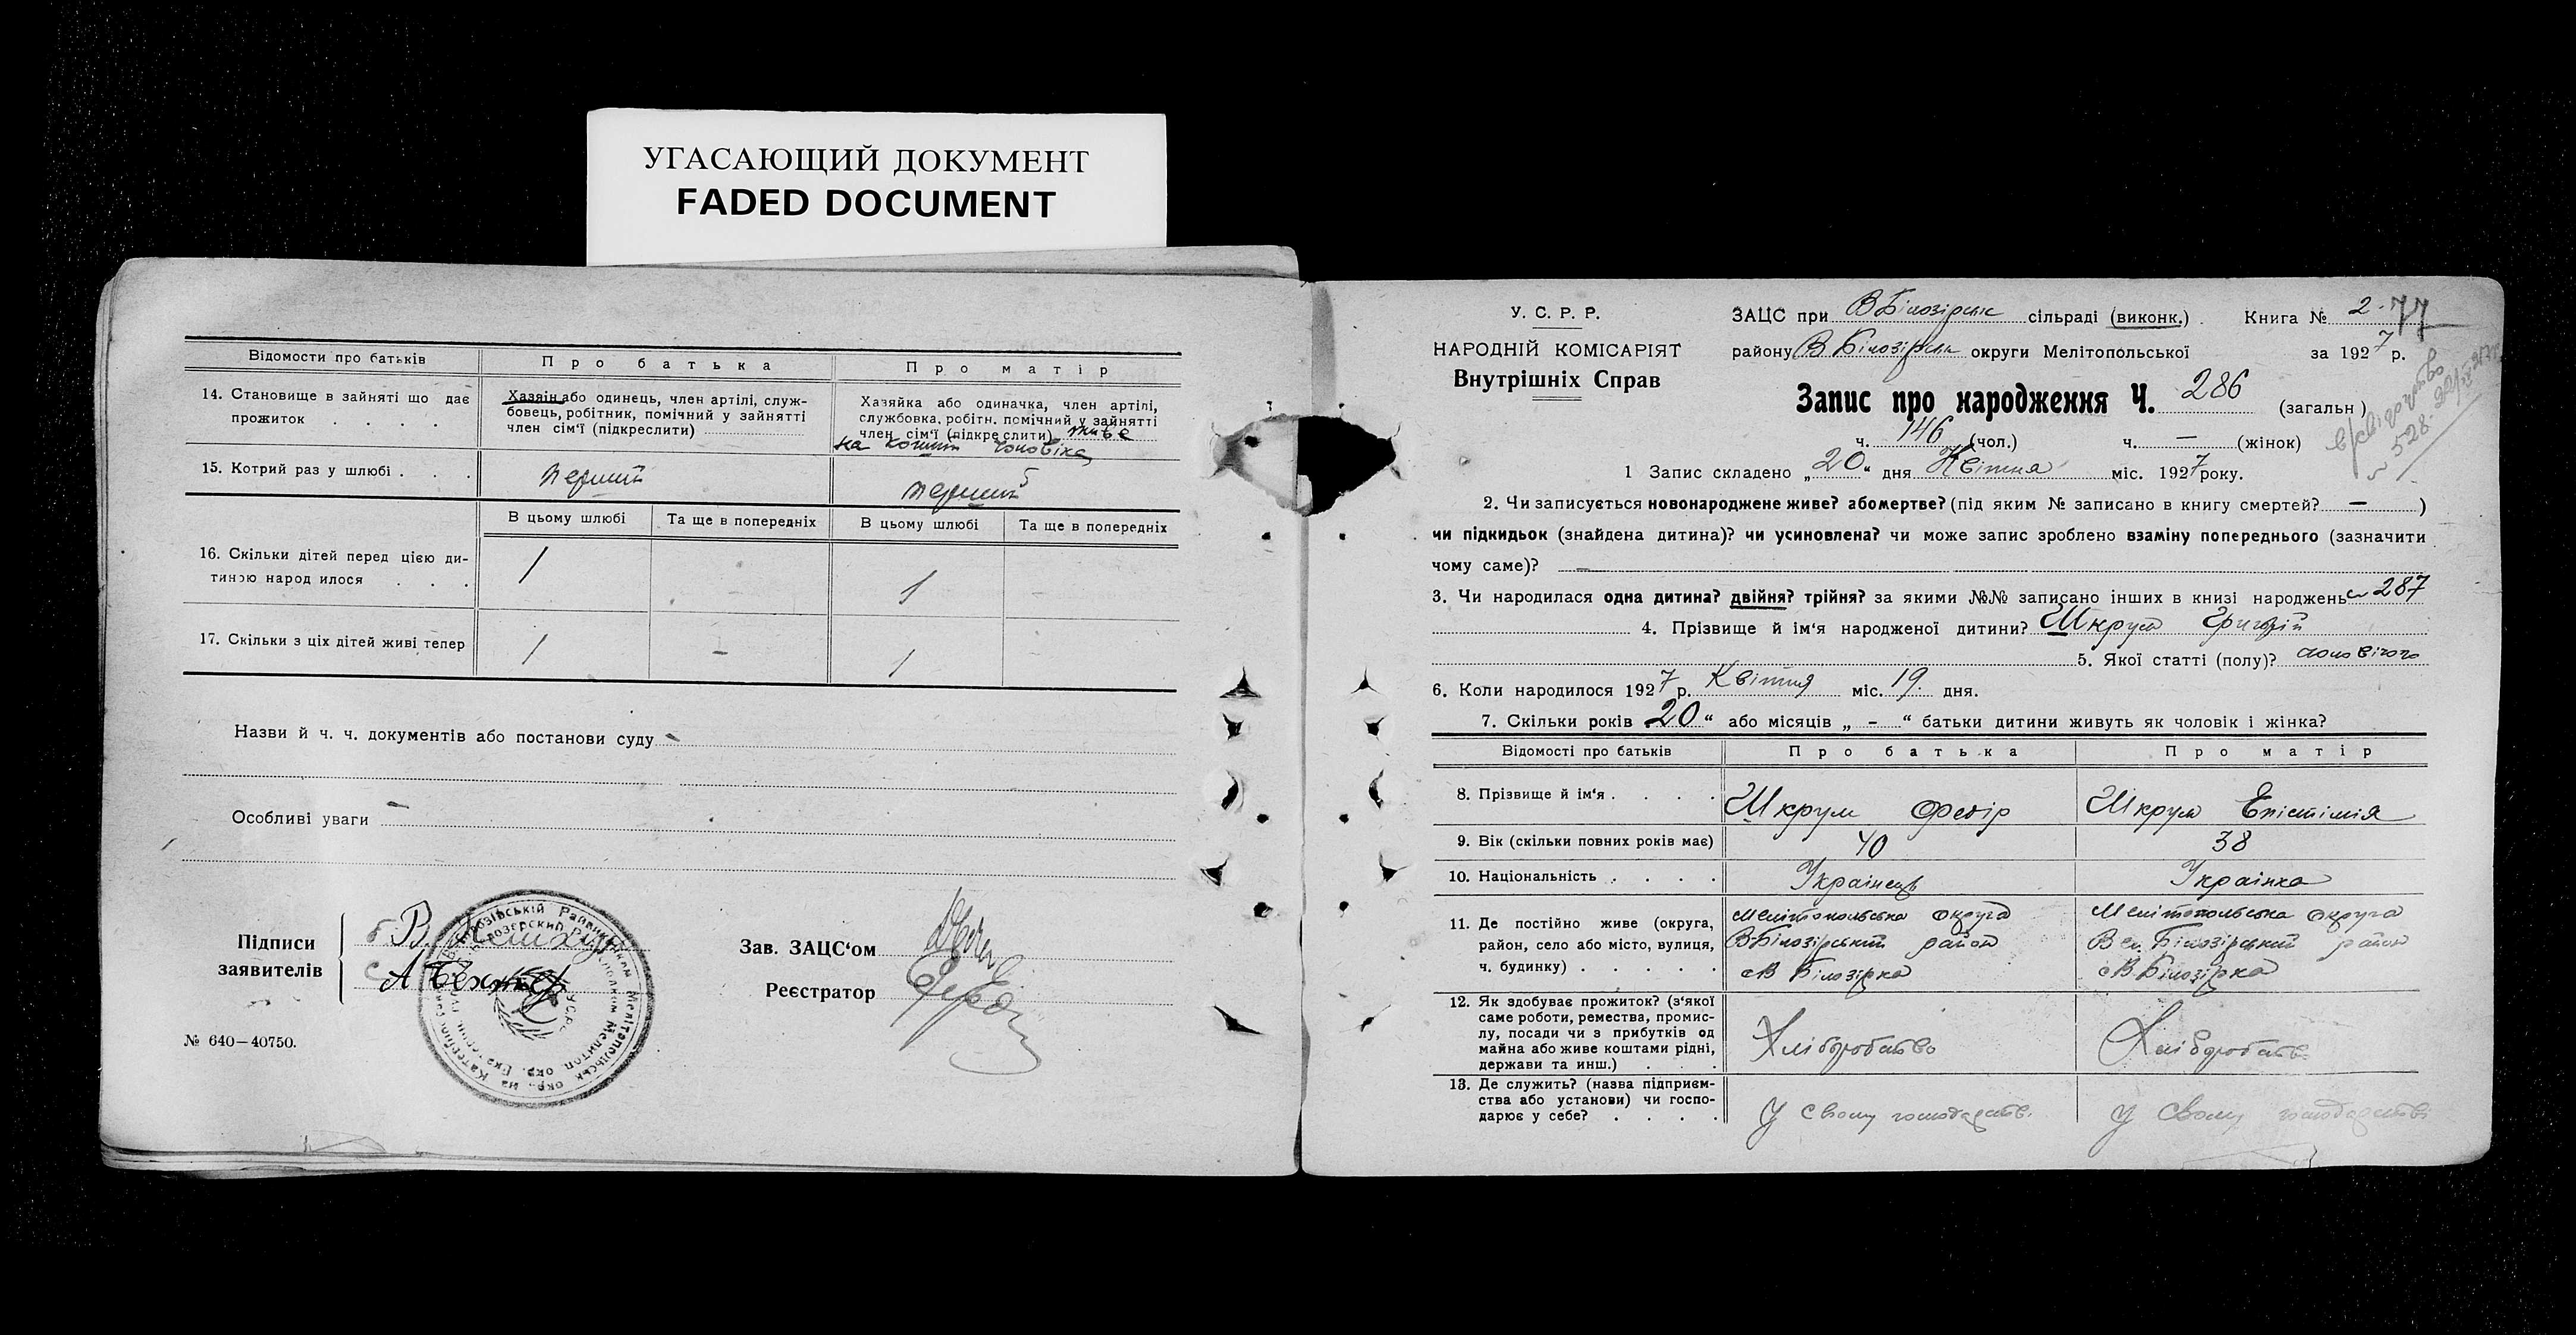 УГАСАЮЩИЙ ДОКУМЕНТ
FADED DOCUMENT
Відомости про батьків
Про батька
Про матір
14. Становище в зайняті що дає прожиток . . . .
Хазяін або одинець, член артілі, служ-
бовець, робітник, помічний у зайнятті
член сім'ї (підкреслити)
Хазяйка або одиначка, член артілі,
службовка, робітн. помічний у зайнятті
член сім'ї (підкреслити) живе
на кошти чоловіка
15. Котрий раз у шлюбі . . .
перший
перший
В цьому шлюбі
Та ще в попередніх
В цьому шлюбі
Та ще в попередніх
16. Скільки дітей перед цією ди-
тиною народилося . . .
1
-
1
-
17. Скільки з ціх дітей живі тепер
1
-
1
-
Назви й ч. ч. документів або постанови суду -
Особливі уваги -
Підписи
заявителів
Зав. ЗАЦС'ом
Реєстратор
№ 640—40750.
У. С. Р. Р.
НАРОДНІЙ КОМІСАРІЯТ
Внутрішніх Справ
ЗАЦС при В Білозірськ сільраді (виконк.) . Книга № 2. 77
району В Білозірськ округи Мелітопольської за 1927 р.
Запис про народження Ч. 286 (загальн)
ч. 146 (чол.) ч. — (жінок)
в/свідоцтво
528
1 Запис складено „20“ дня Квітня міс. 1927 року.
2. Чи записується новонароджене живе? або мертве? (під яким № записано в книгу смертей? — )
чи підкидьок (знайдена дитина)? чи усиновлена? чи може запис зроблено взаміну попереднього (зазначити
чому саме)? —
3. Чи народилася одна дитина? двійня? трійня? за якими №№ записано інших в книзі народжень 287
4. Прізвище й ім'я народженої дитини? Шкрум Григорій
5. Якої статті (полу)? чоловічого
6. Коли народилося 1927 р. Квітня міс. 19 дня.
7. Скільки років 20“ або місяців „ - “ батьки дитини живуть як чоловік і жінка?
Відомості про батьків
Про батька
Про матір
8. Прізвище й ім'я . . . .
Шкрум Федір
Шкрум Епістимія
9. Вік (скільки повних років має)
40
38
10. Національність . . . .
Українець
Українка
11. Де постійно живе (округа,
район, село або місто, вулиця,
ч. будинку) . . . . .
Мелітопольська округа
В-Білозірський район
с В Білозірка
Мелітопольська округа
Вел. Білозірський район
с В. Білозірка
12. Як здобуває прожиток? (з'якої
саме роботи, ремества, промис-
лу, посади чи з прибутків од
майна або живе коштами рідні,
держави та инш.) . . .
Хліборобство
Хліборобство
13. Де служить? (назва підприєм-
ства або установи) чи госпо-
дарює у себе? . . . .
у свому господарстві
у свому господарстві